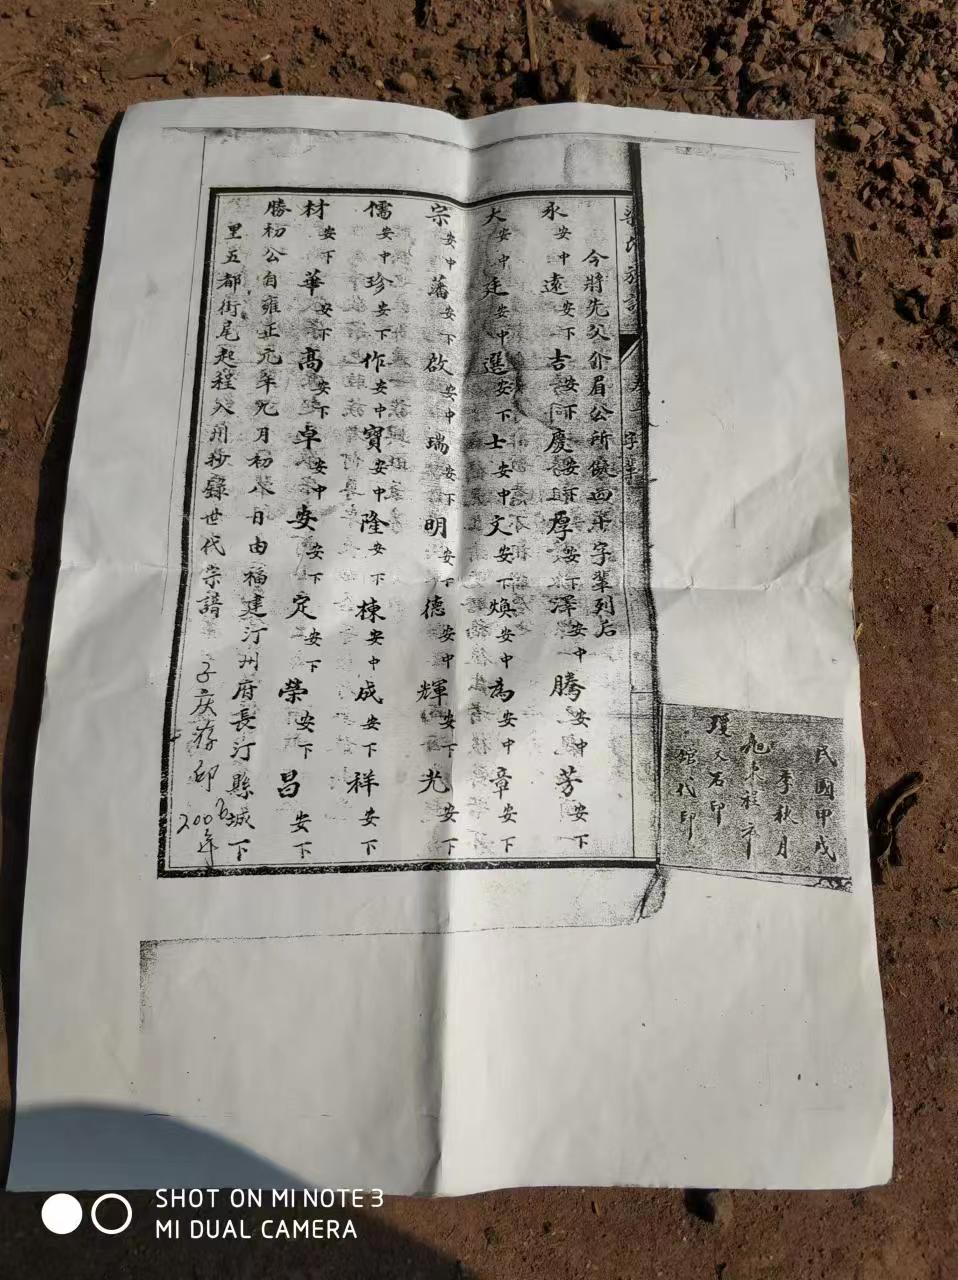 民國甲戌
季秋月
旭東程市
又石印
館代印
氏族譜
今將先父介眉公所擬四十字輩列后
永安中遠安下吉安下慶安下厚安下澤安中騰安中芳安下
大安中廷安中選安下士安中文安下煥安中為安中章安下
宗安中藩安下啟安中瑞安下明安下德安中輝安下光安下
儒安中珍安下作安中寶安中隆安下棟安中成安下祥安下
材安下華安下高安下卓安中安安下定安下榮安下昌安下
勝初公自雍正元年九月初八日由福建汀州府長汀縣城下
里五都街尾起程入川抄錄世代宗譜
子庆游印
200年
SHOT ON MI NOTE 3
MI DUAL CAMERA